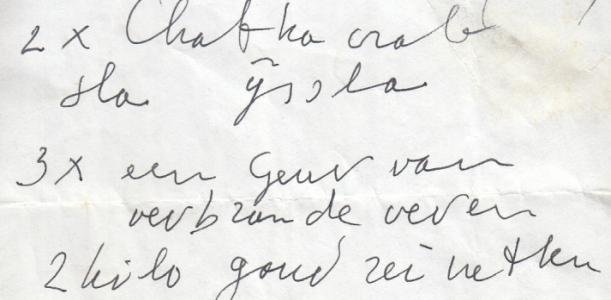 2 x Chatka crab
sla ijssla
3 x een geur van
verbrande veren
2 kilo goud reinetten